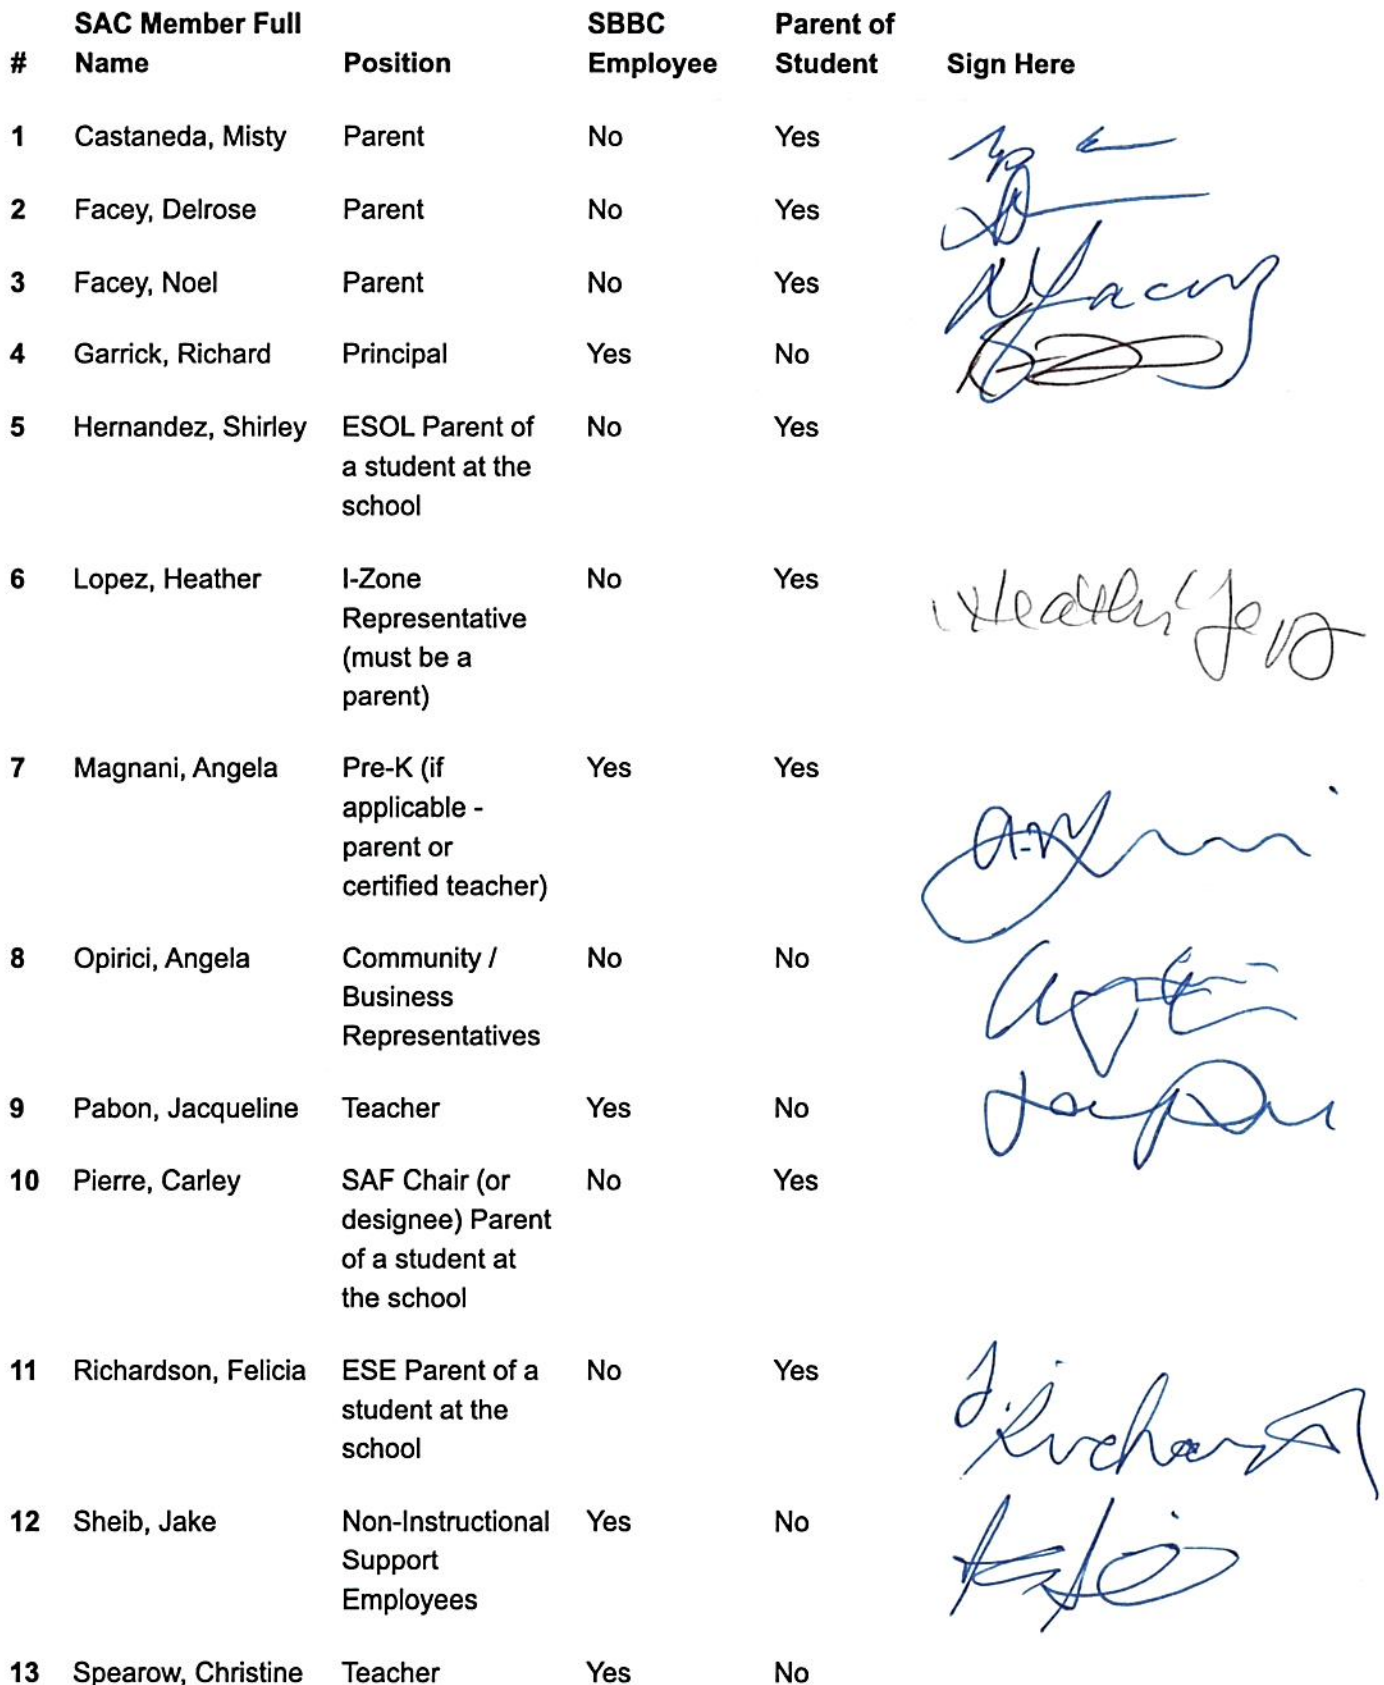 SAC Member Full SBBC Parent of
# Name Position Employee Student Sign Here
1 Castaneda, Misty Parent No Yes
2 Facey, Delrose Parent No Yes
3 Facey, Noel Parent No Yes N Facey
4 Garrick, Richard Principal Yes No
5 Hernandez, Shirley ESOL Parent of No Yes
a student at the
school
6 Lopez, Heather I-Zone No Yes Heather Lopez
Representative
(must be a
parent)
7 Magnani, Angela Pre-K (if Yes Yes
applicable -
parent or
certified teacher)
8 Opirici, Angela Community / No No
Business
Representatives
9 Pabon, Jacqueline Teacher Yes No
10 Pierre, Carley SAF Chair (or No Yes
designee) Parent
of a student at
the school
11 Richardson, Felicia ESE Parent of a No Yes
student at the
school
12 Sheib, Jake Non-Instructional Yes No
Support
Employees
13 Spearow, Christine Teacher Yes No